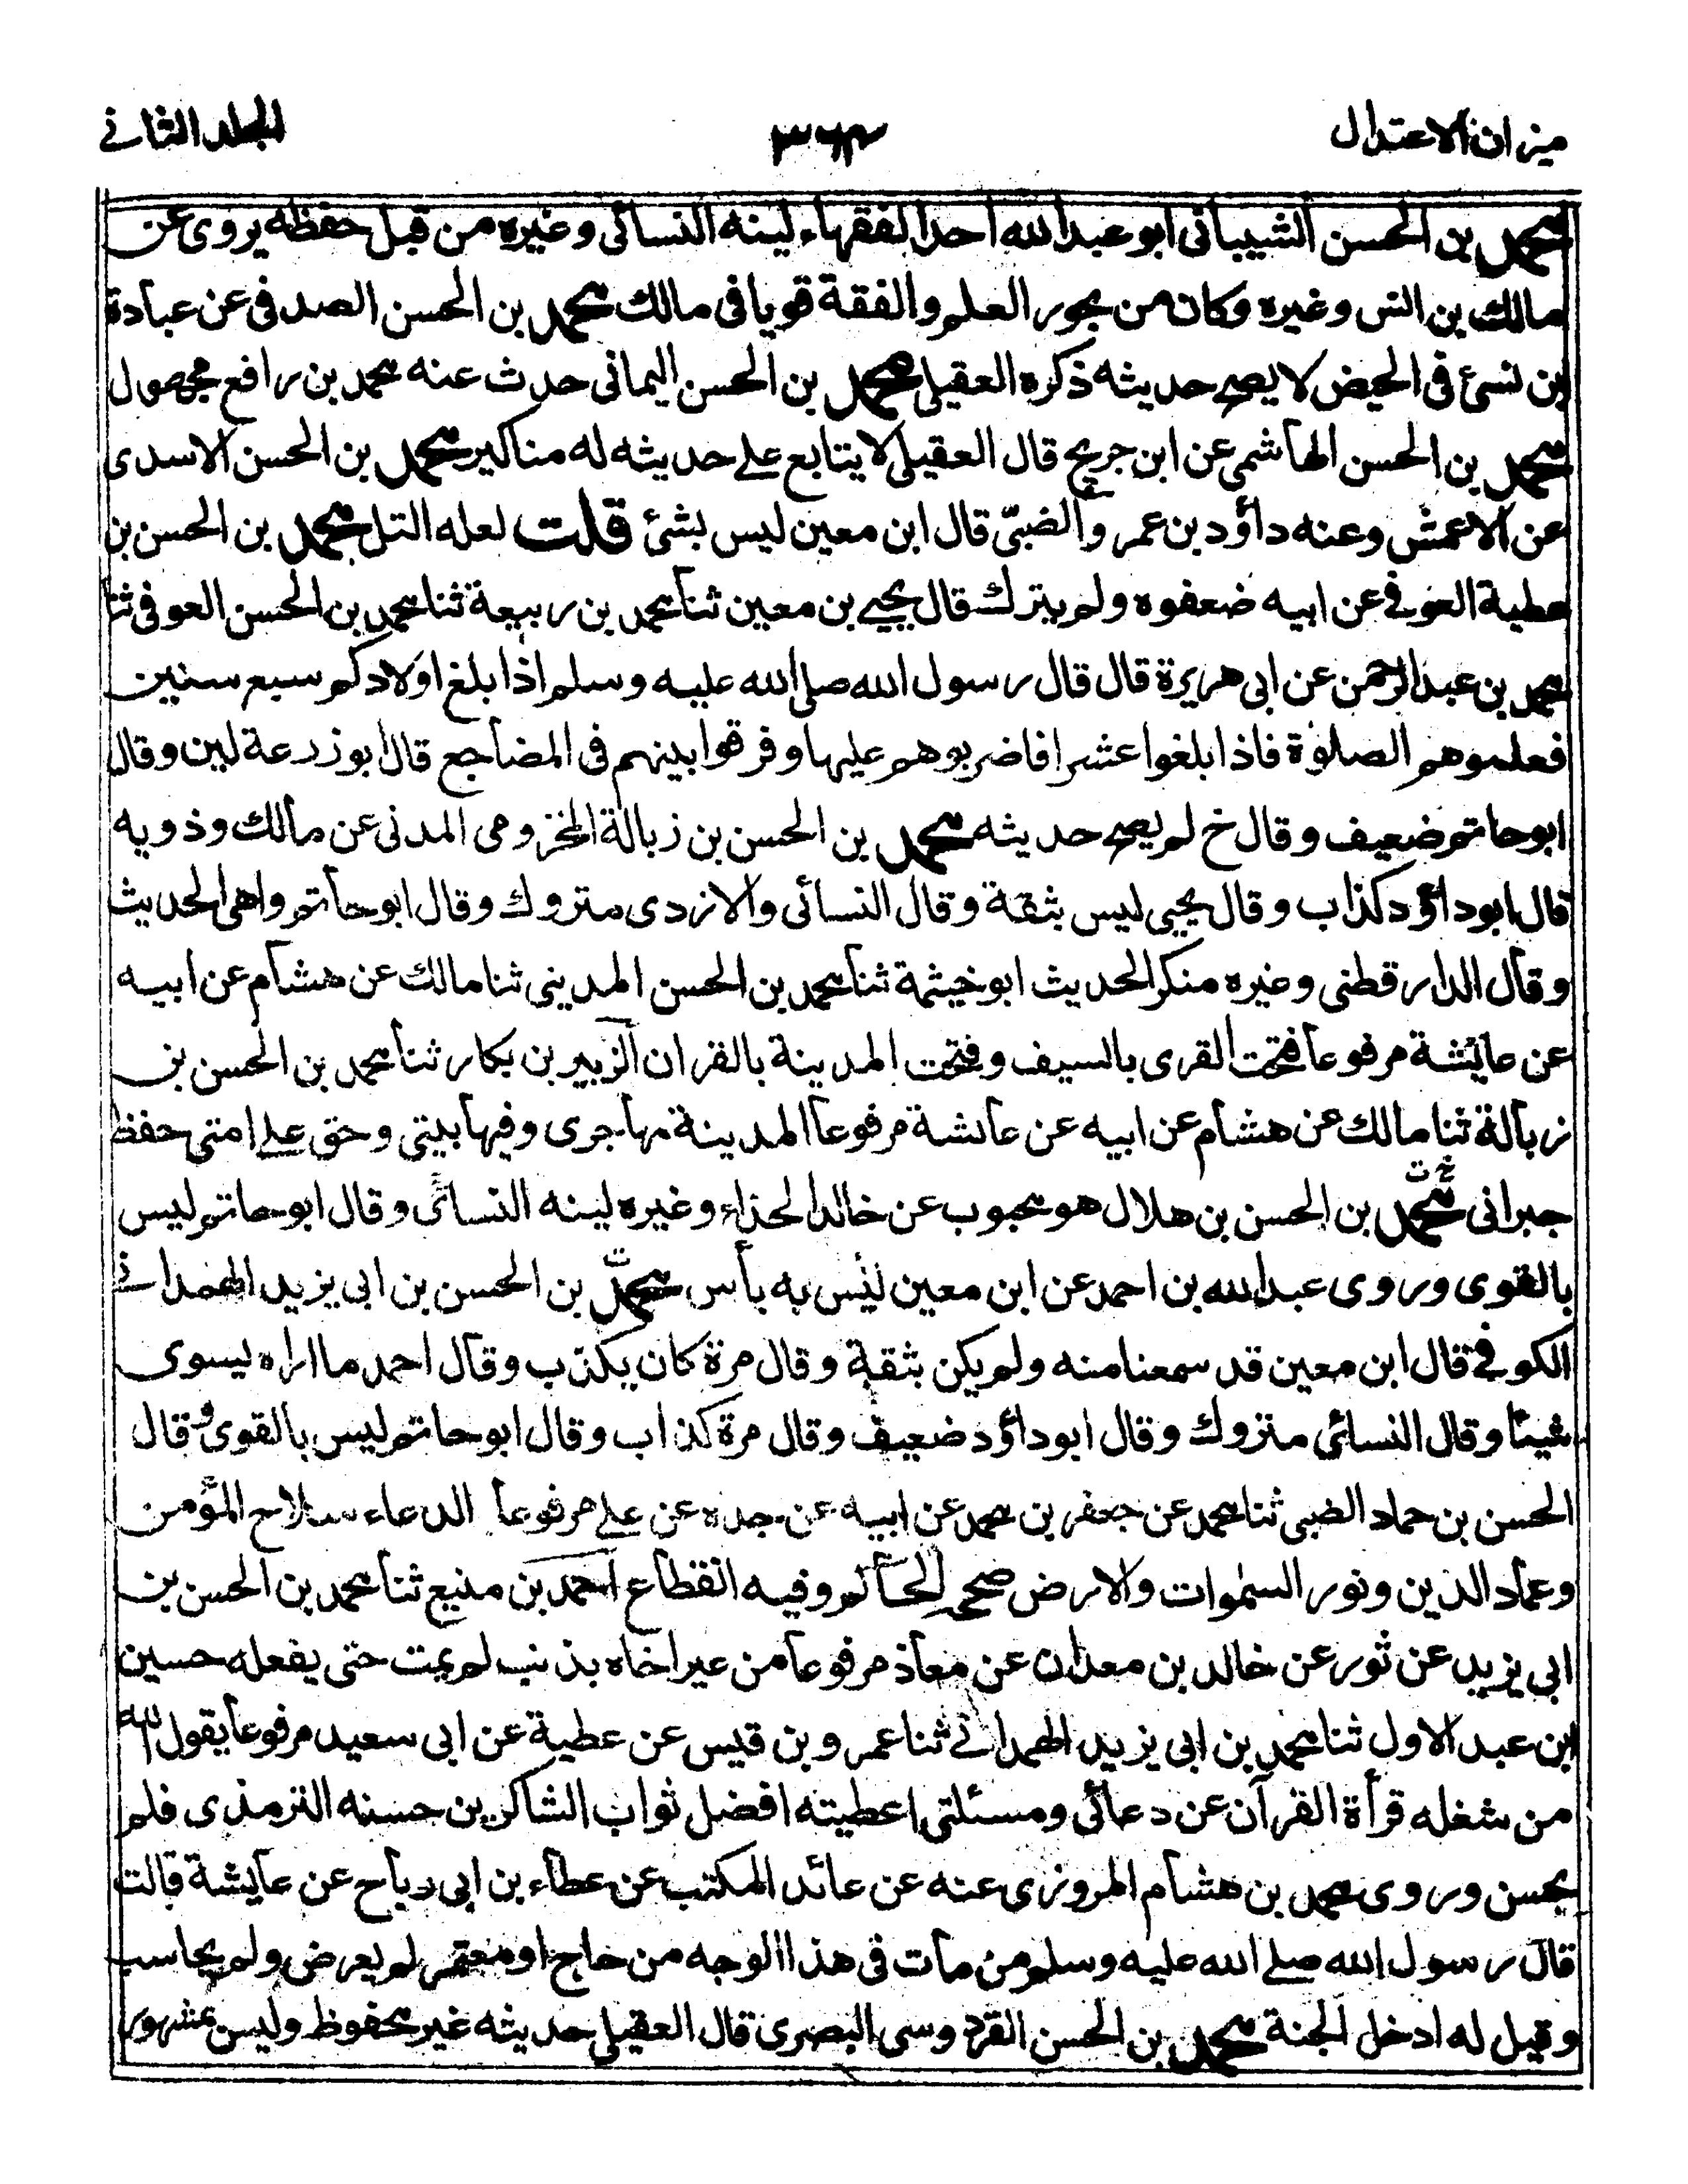 ميزان الاعتدال
٣٦٣
المجلد الثانے
محمد بن الحسن الشيبانى ابو عبد الله احد الفقهاء لينه النسائى وغيره من قبل حفظه يروى عن
مالك بن انس وغيره وكان من بحور العلم والفقة قويا فى مالك محمد بن الحسن الصدفى عن عبادة
بن نسئ فى الحيض لا يصح حديثه ذكره العقيلى محمد بن الحسن اليمانى حدث عنه محمد بن رافع مجهول
محمد بن الحسن الهاشمى عن ابن جريج قال العقيلى لا يتابع علے حديثه له مناكير محمد بن الحسن الاسدى
عن الاعمش وعنه داؤد بن عمر والضبىّ قال ابن معين ليس بشئ قلت لعله التل محمد بن الحسن بن
عطية العوفے عن ابيه ضعفوه ولم يترك قال يحيے بن معين ثنا محمد بن ربيعة ثنا محمد بن الحسن العوفى ثنا
محمد بن عبد الرحمن عن ابى هريرة قال قال رسول الله صلى الله عليه وسلم اذا بلغ اولادكم سبع سنين
فعلموهم الصلوة فاذا بلغوا عشرا فاضربوهم عليها وفرقوا بينهم فى المضاجع قال ابو زرعة لين وقال
ابو حاتم ضعيف وقال خ لم يصح حديثه محمد بن الحسن بن زبالة المخزومى المدنى عن مالك وذويه
قال ابو داؤد كذاب وقال يحيى ليس بثقة وقال النسائى والازدى متروك وقال ابو حاتم واهى الحديث
وقال الدارقطنى وغيره منكر الحديث ابو خيثمة ثنا محمد بن الحسن المدينى ثنا مالك عن هشام عن ابيه
عن عايشة مرفوعا فتحت القرى بالسيف وفتحت المدينة بالقران الزبير بن بكار ثنا محمد بن الحسن بن
زبالة ثنا مالك عن هشام عن ابيه عن عائشة مرفوعا المدينة مهاجرى وفيها بيتى وحق علے امتى حفظ
جيرانى محمد بن الحسن بن هلال هو محبوب عن خالد الحذاء وغيره لينه النسائى وقال ابو حاتم ليس
بالقوى وروى عبد الله بن احمد عن ابن معين ليس به بأس محمد بن الحسن بن ابى يزيد الهمدانے
الكوفے قال ابن معين قد سمعنا منه ولم يكن بثقة وقال مرة كان يكذب وقال احمد ما اراه يسوى
شيئا وقال النسائى متروك وقال ابو داؤد ضعيف وقال مرة كذاب وقال ابو حاتم ليس بالقوى وقال
الحسن بن حماد الضبى ثنا محمد عن جعفر بن محمد عن ابيه عن جده عن علے مرفوعا الدعاء سلاح المؤمن
وعماد الدين ونور السموات والارض صححه الحاكم وفيه انقطاع احمد بن منيع ثنا محمد بن الحسن بن
ابى يزيد عن ثور عن خالد بن معدان عن معاذ مرفوعا من عير اخاه بذنب لم يمت حتى يفعله حسين
ابن عبد الاول ثنا محمد بن ابى يزيد الهمدانے ثنا عمرو بن قيس عن عطية عن ابى سعيد مرفوعا يقول الله
من شغله قرأة القرآن عن دعائى ومسئلتى اعطيته افضل ثواب الشاكرين حسنه الترمذى فلم
يحسن وروى محمد بن هشام المروزى عنه عن عائد المكتب عن عطاء بن ابى رباح عن عايشة قالت
قال رسول الله صلے الله عليه وسلم من مات فى هذا الوجه من حاج او معتمر لم يعرض ولم يحاسب
وقيل له ادخل الجنة محمد بن الحسن القردوسى البصرى قال العقيلى حديثه غير محفوظ وليس بمشهور